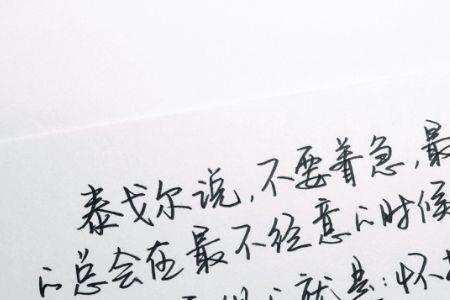 泰戈尔说,不要着急,最
的总会在最不经意的时候
就是:怀